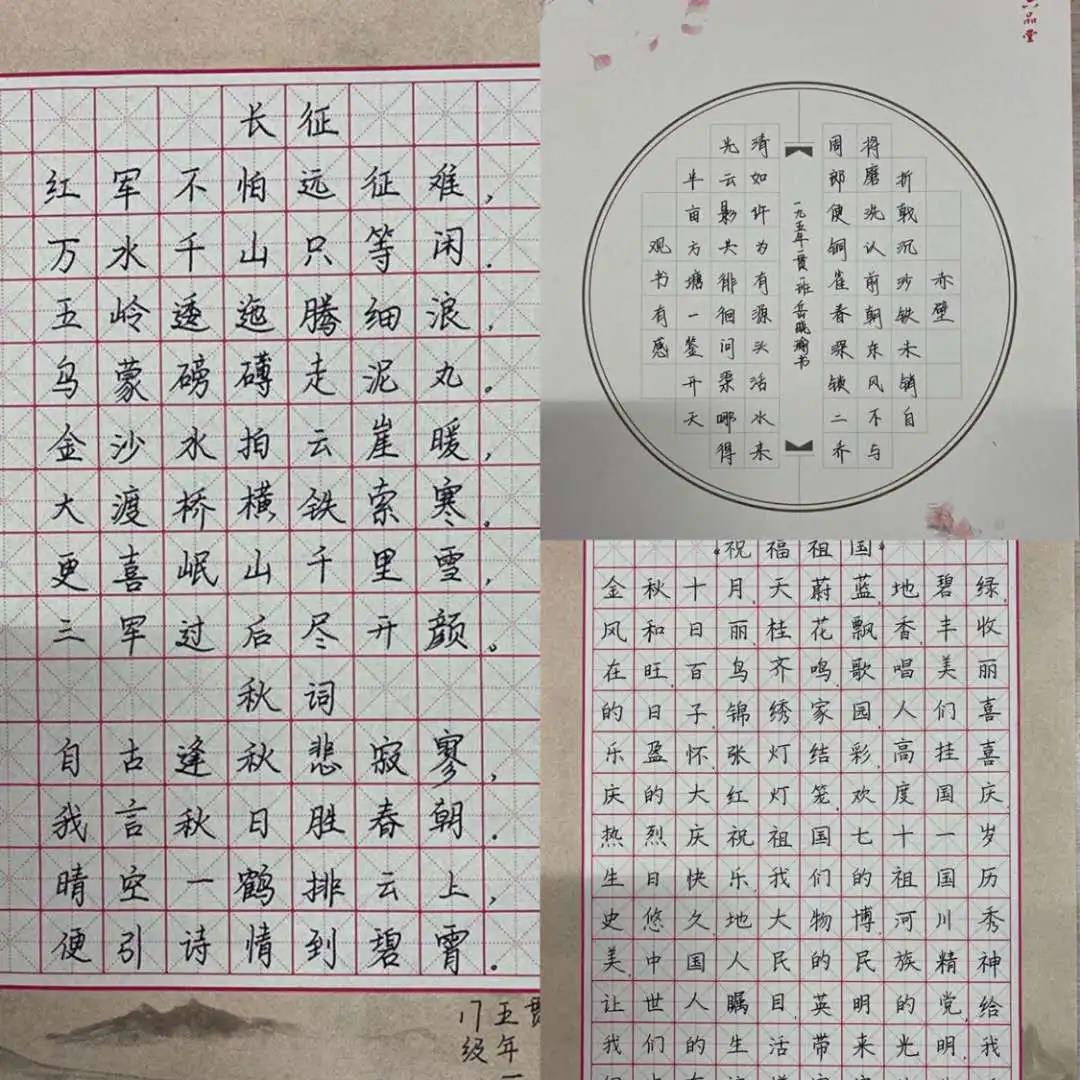 长征
红军不怕远征难，
万水千山只等闲．
五岭逶迤腾细浪，
乌蒙磅礴走泥丸。
金沙水拍云崖暖，
大渡桥横铁索寒。
更喜岷山千里雪，
三军过后尽开颜。
秋词
自古逢秋悲寂寥，
我言秋日胜春朝．
晴空一鹤排云上，
便引诗情到碧霄．
品堂
赤壁
折戟沉沙铁未销自
将磨洗认前朝东风不与
周郎便铜雀春深锁二乔
一九五年一贯一班岳晓瑜书
观书有感
半亩方塘一鉴开天
光云影共徘徊问渠哪得
清如许为有源头活水来
《祝福祖国》
金秋十月,天蔚蓝,地碧绿,
风和日丽,桂花飘香,丰收
在旺,百鸟齐鸣,歌唱美丽
的日子,锦绣家园,人们喜
乐盈怀,张灯结彩,高挂喜
庆的大红灯笼,欢度国庆,
热烈庆祝祖国七十一岁
生日快乐,我们的祖国历
史悠久,地大物博,河川秀
美,中国人民的民族精神
让世人瞩目,英明的党,给
我们的生活带来光明,我